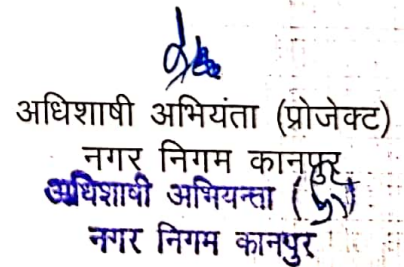 अधिशाषी अभियंता (प्रोजेक्ट)
नगर निगम कानपुर
अधिशाषी अभियन्ता (
नगर निगम कानपुर